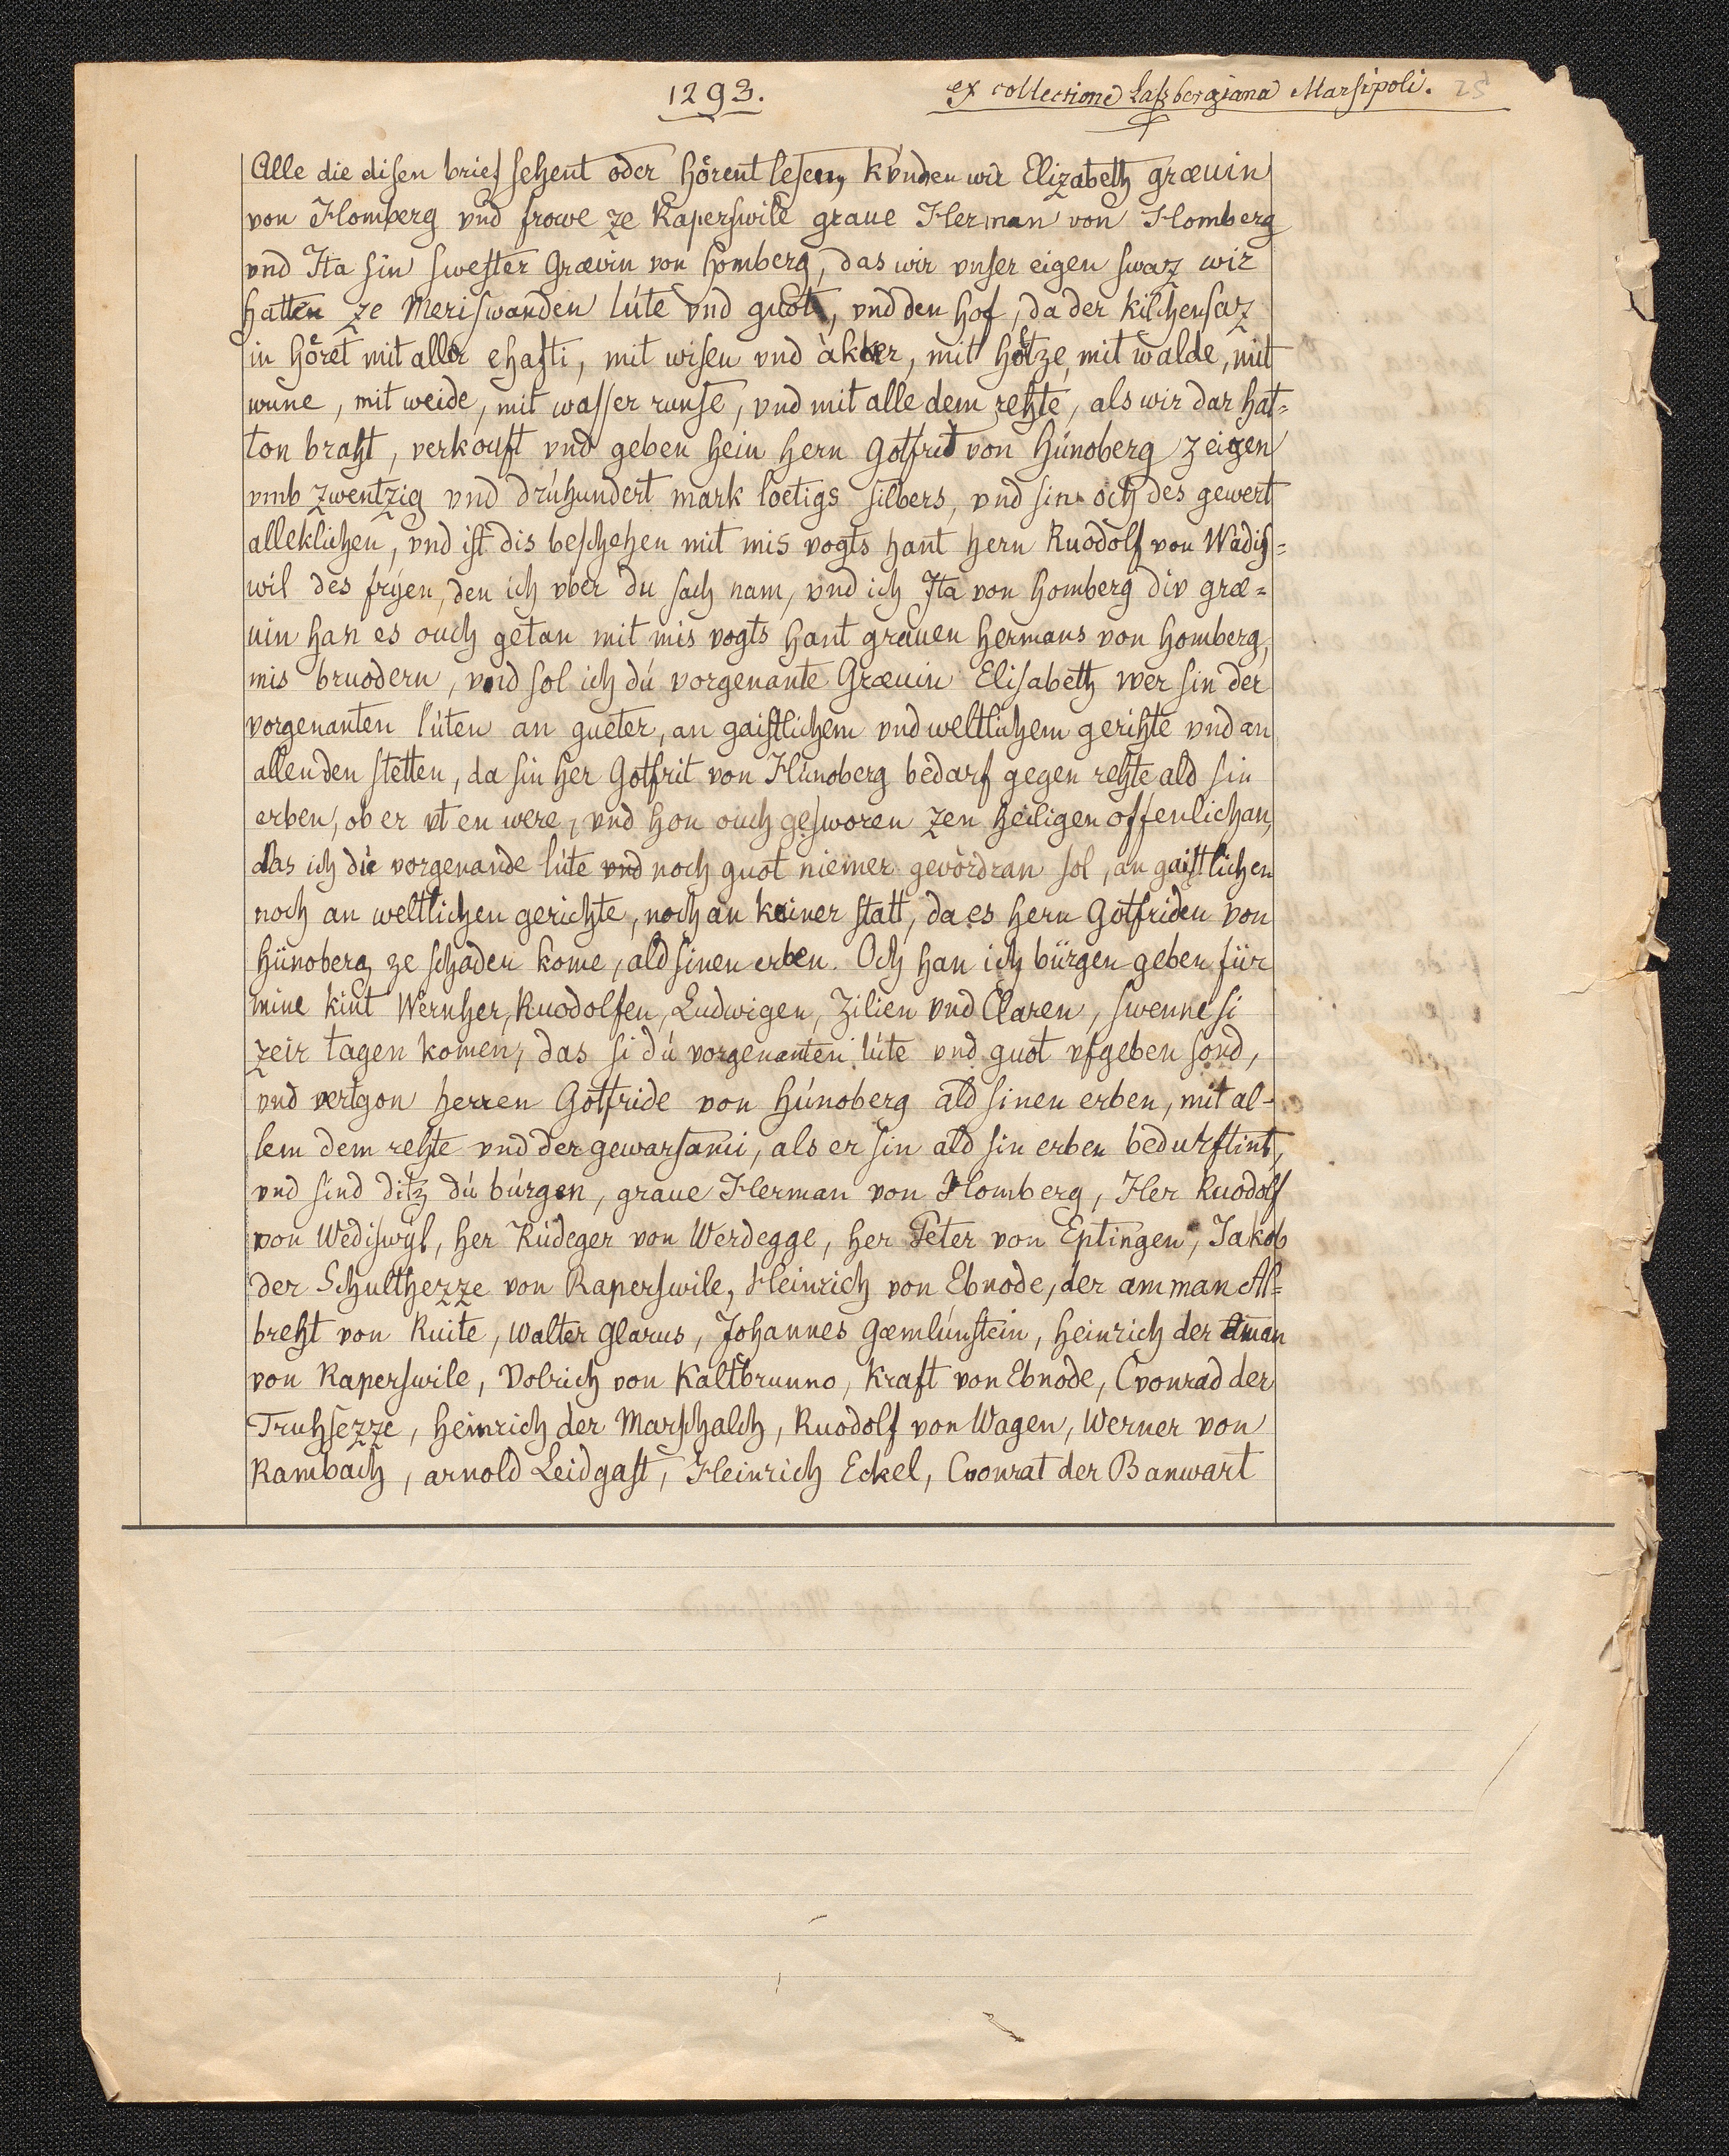 1293.
ex collectione Laßbergiana Marsipoli. 25
Alle die disen brief sehent oder hörent lesenn, kvnden wir Elizabeth græuin
von Homberg vnd frowe ze Raperswile graue Herman von Homberg
vnd Ita sin swester Grævin von Homberg, das wir vnser eigen swaz wir
hatten ze Meriswanden lúte vnd guot, vnd den hof, da der kilchensaz
in höret mit aller ehafti, mit wisen vnd àkker, mit hôtze, mit walde, mit
wune, mit weide, mit wasser runse, vnd mit alle dem rehte, als wir dar hat=
ton braht, verkouft vnd geben hein hern Gotfrid von Húnoberg zeigen
vmb zwentzig vnd drúhundert mark loetigs silbers, vnd sin och des gewert
alleklichen, vnd ist dis beschehen mit mis vogts hant hern Ruodolf von Wàdis=
wil des fryen, den ich vber du sach nam, vnd ich Ita von Homberg div græ=
uin han es ouch getan mit mis vogts hant grauen Hermans von Homberg,
mis bruodern, vnd sol ich dú vorgenante Græuin Elisabeth wer sin der
vorgenanten lúten an gueter, an gaistlichem vnd weltlichem gerihte vnd an
allen den stetten, da sin her Gotfrit von Húnoberg bedarf gegen rehte ald sin
erben, ob er vt en were, vnd hon ouch gesworen zen heiligen offenlichan,
das ich die vorgenande lúte vnd noch guot niemer gevòrdran sol, an gaistlichen
noch an weltlichen gerichte, noch an keiner statt, da es hern Gotfriden von
Hünoberg ze schaden kome, ald sinen erben. Och han ich bürgen geben für
mine kint Wernher, Ruodolfen, Ludwigen, Zilien vnd Claren, swenne si
zeir tagen komen, das si dú vorgenanten lúte vnd guot vfgeben sond,
vnd vertgon herren Gotfride von Húnoberg ald sinen erben, mit al-
lem dem rehte vnd der gewarsami, als er sin ald sin erben bedurftint,
vnd sind ditz dú búrgen, graue Herman von Homberg, Her Ruodolf
von Wediswyl, her Rúdeger von Werdegge, her Peter von Eptingen, Jakob
der Schulthezze von Raperswile, Heinrich von Ebnode, der amman Al=
breht von Ruite, Walter Glarus, Johannes Gæmlúnstein, Heinrich der Aman
von Raperswile, Volrich von Kaltbrunno, Kraft von Ebnode, Cvonrad der
Truhsezze, Heinrich der Marschalch, Ruodolf von Wagen, Werner von
Rambach, arnold Leidgast, Heinrich Eckel, Cvonrat der Banwart